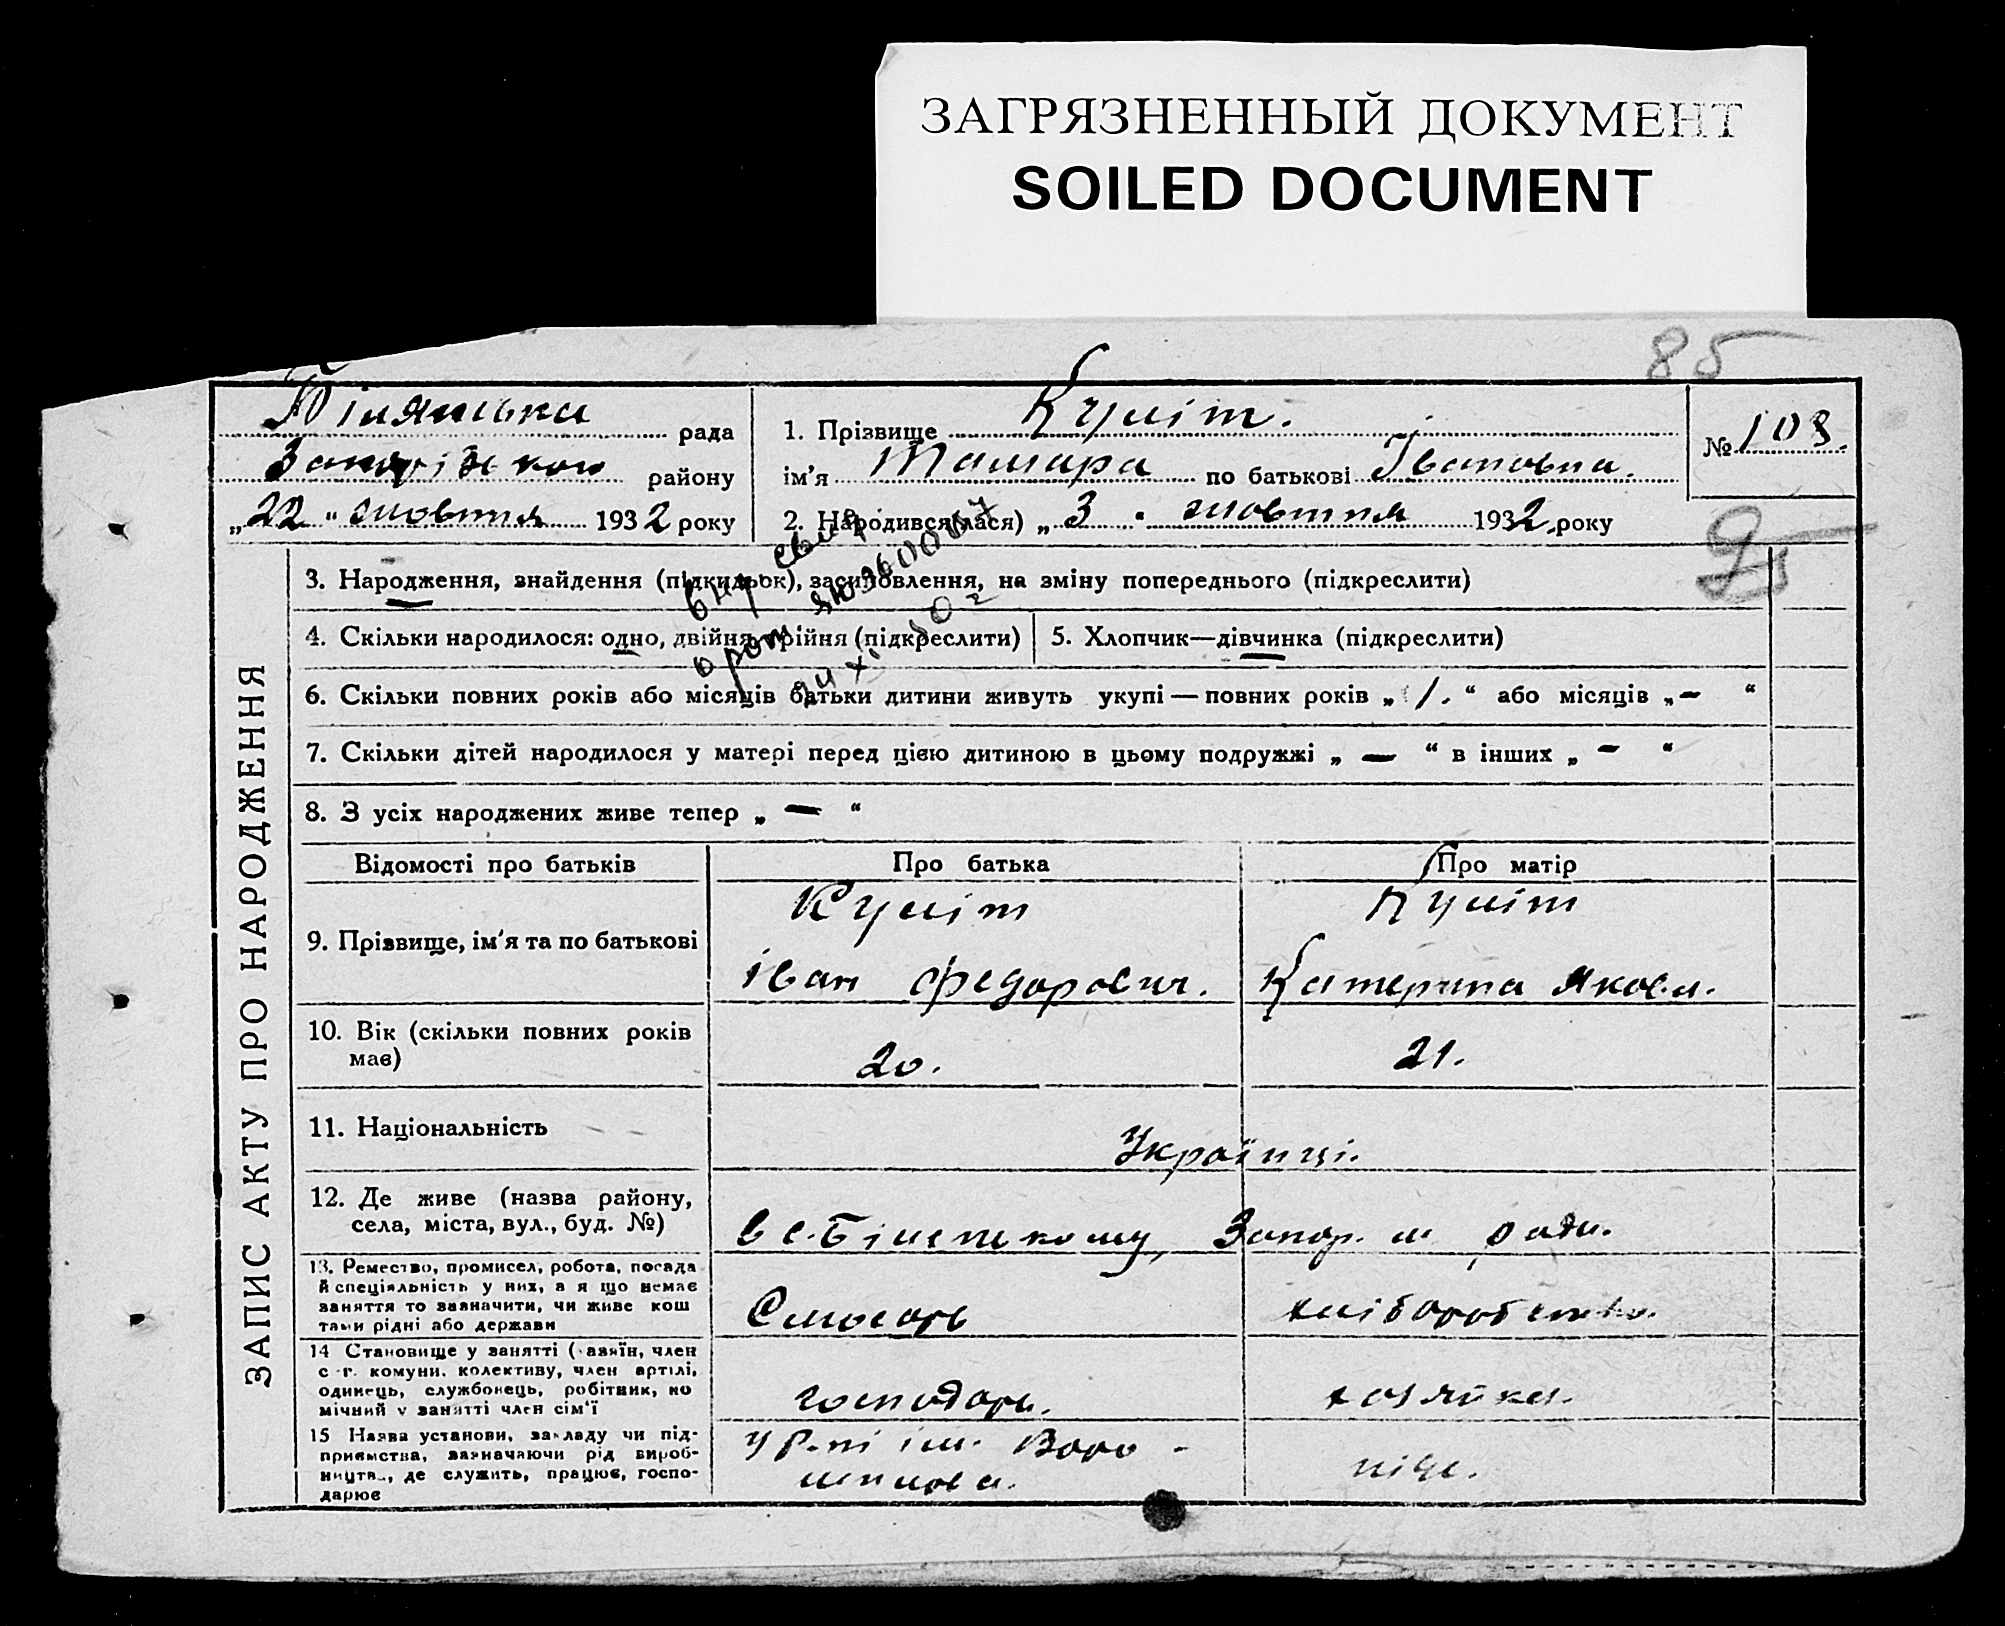 ЗАГРЯЗНЕННЫЙ ДОКУМЕНТ
SOILED DOCUMENT
85
рада
району
„22“ жовтня 1932 року
1. Прізвище
ім'я Тамара по батькові Івановна.
2. Народився(лася) „3“ жовтня 1932 року
№ 108.
95
ЗАПИС АКТУ ПРО НАРОДЖЕННЯ
3. Народження, знайдення (підкидьок), засиновлення, на зміну попереднього (підкреслити)
4. Скільки народилося: одно, двійня, трійня (підкреслити)
5. Хлопчик—дівчинка (підкреслити)
6. Скільки повних років або місяців батьки дитини живуть укупі — повних років „1.“ або місяців „—“
7. Скільки дітей народилося у матері перед цією дитиною в цьому подружжі „—“ в інших „—“
8. З усіх народжених живе тепер „—“
Відомості про батьків
Про батька
Про матір
9. Прізвище, ім'я та по батькові
Іван Федорович.
Катерина Яковл.
10. Вік (скільки повних років має)
20.
21.
11. Національність
Українці.
12. Де живе (назва району, села, міста, вул., буд. №)
в с. Запор. м ради.
13. Ремество, промисел, робота, посада й спеціяльність у них, а я що немає заняття то зазначити, чи живе кош тами рідні або держави
Слюсарь
хліборобство.
14 Становище у занятті (хазяїн, член с-г. комуни, колективу, член артілі, одинець, службовець, робітник, помічний у занятті член сім'ї
господарь.
хозяйка.
15 Назва установи, закладу чи підприємства, зазначаючи рід виробництва, де служить, працює, господарює
ім. Воро-
шилова.